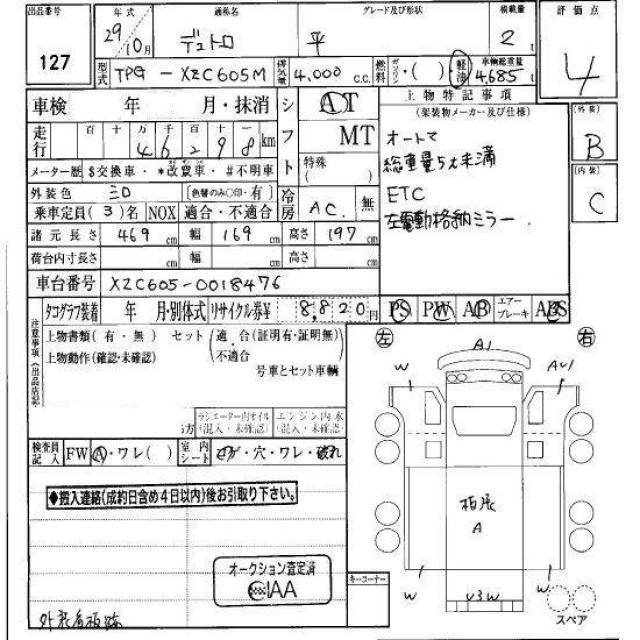 出品番号 127
年式 29年10月
通称名 デュトロ
グレード及び形状 平
積載量 2t
評価点 4
型式 TPG-XZC605M
排気量 4,000c.c.
燃料 ガソリン・( ) 軽油
車輌総重量 4,685t
車検 年 月・抹消
シフト AT MT 特殊( )
上物特記事項
(架装物メーカー及び仕様)
オートマ
総重量5t未満
ETC
左電動格納ミラー
(外装) B
(内装) C
走行 百 十 万 千 百 十 一
46298km
メーター歴 $交換車・*改竄車・#不明車
外装色 シロ [色替のみ○印・有]
冷房 AC. 無
乗車定員(3)名 NOX 適合・不適合
諸元長さ 469cm 幅 169cm 高さ 197cm
荷台内寸長さ cm 幅 cm 高さ cm
車台番号 XZC605-0018476
タコグラフ装着 年 月・別体式 リサイクル券¥ 8,820円
PS PW AB エアーブレーキ ABS
注意事項(出品店記)
上物書類(有・無) セット(適 合(証明有・証明無) 不適合
上物動作(確認・未確認) 号車とセット車輌
ラジエーター内オイル(混入・未確認) エンジン内水(混入・未確認)
検査員記入 FW A・ワレ( ) 室内シート コゲ・穴・ワレ・破れ
◆搬入連絡(成約日含め4日以内)後お引取り下さい。
オークション査定済
IAA
キーコーナー
外装看板跡
左 右
A1
W AW1
板張
A
W W
W U3W W
スペア